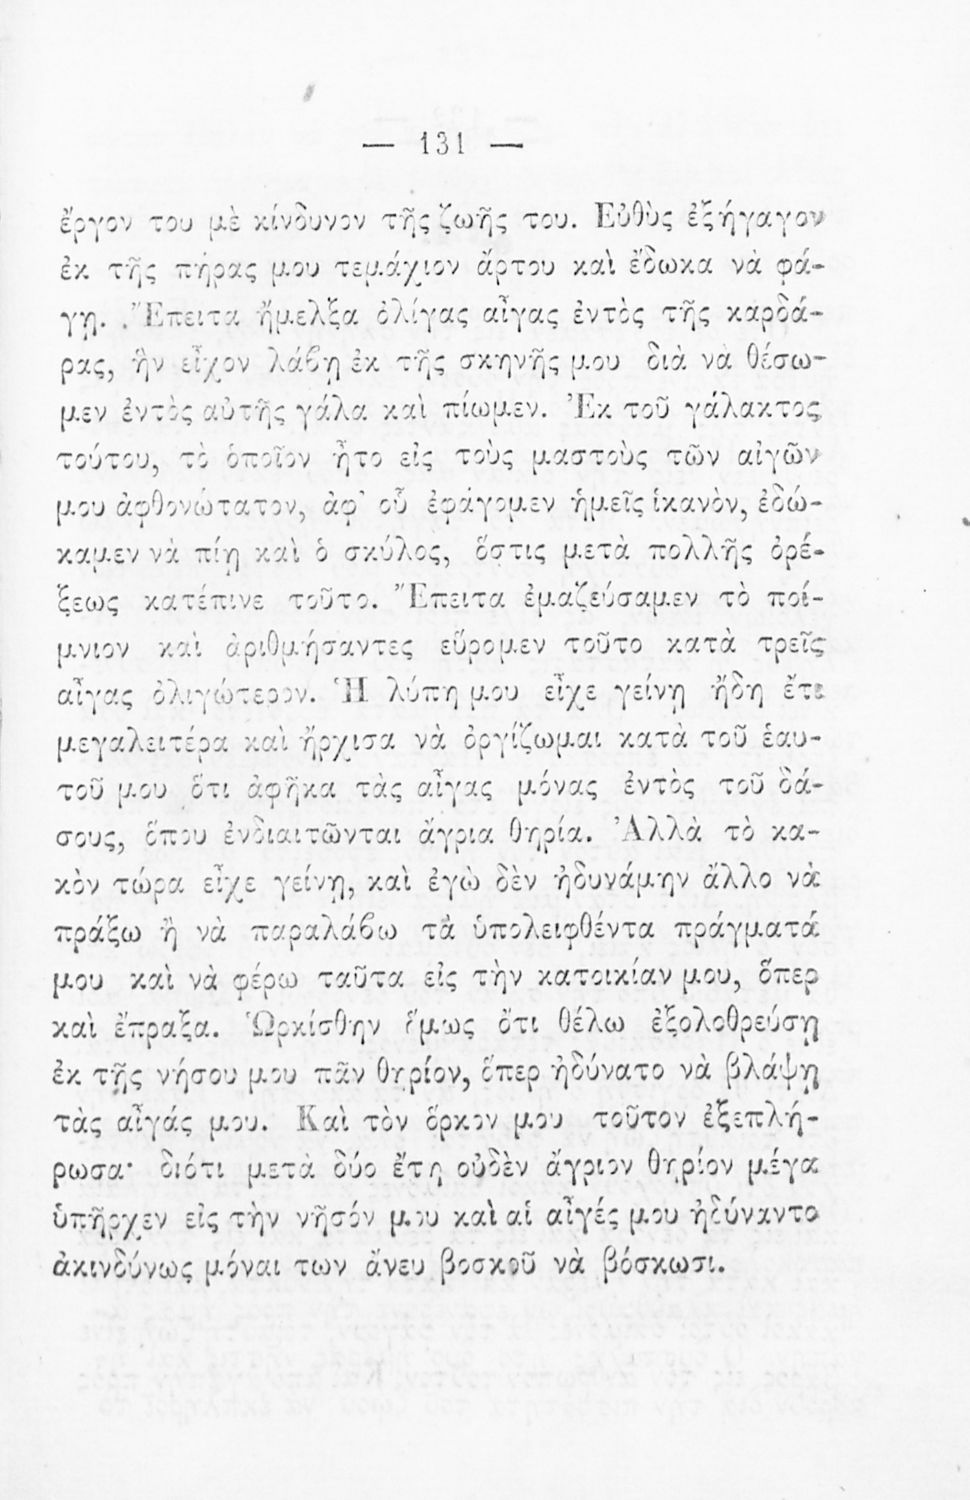 — 131 —
ἔργον του μὲ κίνδυνον τῆς ζωῆς του. Εὐθὺς ἐξήγαγον
ἐκ τῆς πήρας μου τεμάχιον ἄρτου καὶ ἔδωκα νὰ φά-
γῃ. Ἔπειτα ἤμελξα ὀλίγας αἶγας ἐντὸς τῆς καρδά-
ρας, ἣν εἶχον λάβῃ ἐκ τῆς σκηνῆς μου διὰ νὰ θέσω-
μεν ἐντὸς αὐτῆς γάλα καὶ πίωμεν. Ἐκ τοῦ γάλακτος
τούτου, τὸ ὁποῖον ἦτο εἰς τοὺς μαστοὺς τῶν αἰγῶν
μου ἀφθονώτατον, ἀφ' οὗ ἐφάγομεν ἡμεῖς ἱκανὸν, ἐδώ-
καμεν νὰ πίῃ καὶ ὁ σκύλος, ὅστις μετὰ πολλῆς ὀρέ-
ξεως κατέπινε τοῦτο. Ἔπειτα ἐμαζεύσαμεν τὸ ποί-
μνιον καὶ ἀριθμήσαντες εὕρομεν τοῦτο κατὰ τρεῖς
αἶγας ὀλιγώτερον. Ἡ λύπη μου εἶχε γείνῃ ἤδη ἔτι
μεγαλειτέρα καὶ ἤρχισα νὰ ὀργίζωμαι κατὰ τοῦ ἑαυ-
τοῦ μου ὅτι ἀφῆκα τὰς αἶγας μόνας ἐντὸς τοῦ δά-
σους, ὅπου ἐνδιαιτῶνται ἄγρια θηρία. Ἀλλὰ τὸ κα-
κὸν τώρα εἶχε γείνῃ, καὶ ἐγὼ δὲν ἠδυνάμην ἄλλο νὰ
πράξω ἢ νὰ παραλάβω τὰ ὑπολειφθέντα πράγματά
μου καὶ νὰ φέρω ταῦτα εἰς τὴν κατοικίαν μου, ὅπερ
καὶ ἔπραξα. Ὡρκίσθην ὅμως ὅτι θέλω ἐξολοθρεύσῃ
ἐκ τῆς νήσου μου πᾶν θηρίον, ὅπερ ἠδύνατο νὰ βλάψῃ
τὰς αἶγάς μου. Καὶ τὸν ὅρκον μου τοῦτον ἐξεπλή-
ρωσα· διότι μετὰ δύο ἔτη οὐδὲν ἄγριον θηρίον μέγα
ὑπῆρχεν εἰς τὴν νῆσόν μου καὶ αἱ αἶγές μου ἠδύναντο
ἀκινδύνως μόναι των ἄνευ βοσκοῦ νὰ βόσκωσι.